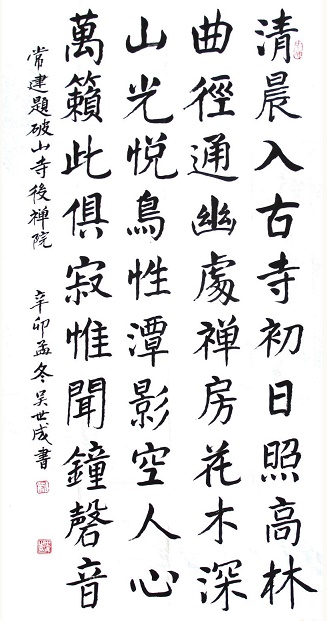 清晨入古寺初日照高林
曲徑通幽處禪房花木深
山光悅鳥性潭影空人心
萬籟此俱寂惟聞鐘磬音
常建題破山寺後禪院 辛卯孟冬吴世成書